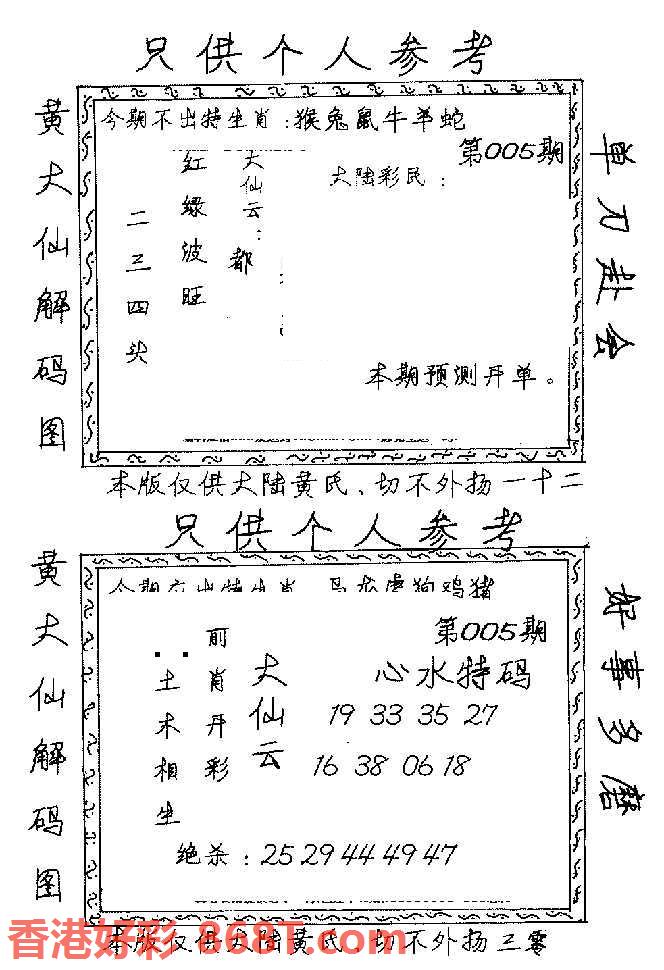 只供个人参考
黄大仙解码图
今期不出特生肖:猴兔鼠牛羊蛇
第005期
大陆彩民:
大仙云:都
红绿波旺
二三四头
本期预测开单。
单刀赴会
本版仅供大陆黄氏、切不外扬一十二
只供个人参考
黄大仙解码图
狗鸡猪
第005期
心水特码
19 33 35 27
16 38 06 18
大仙云
前肖开彩
土木相生
绝杀:25 29 44 49 47
好事多磨
本版仅供大陆黄氏、切不外扬三零
香港好彩 868T.com